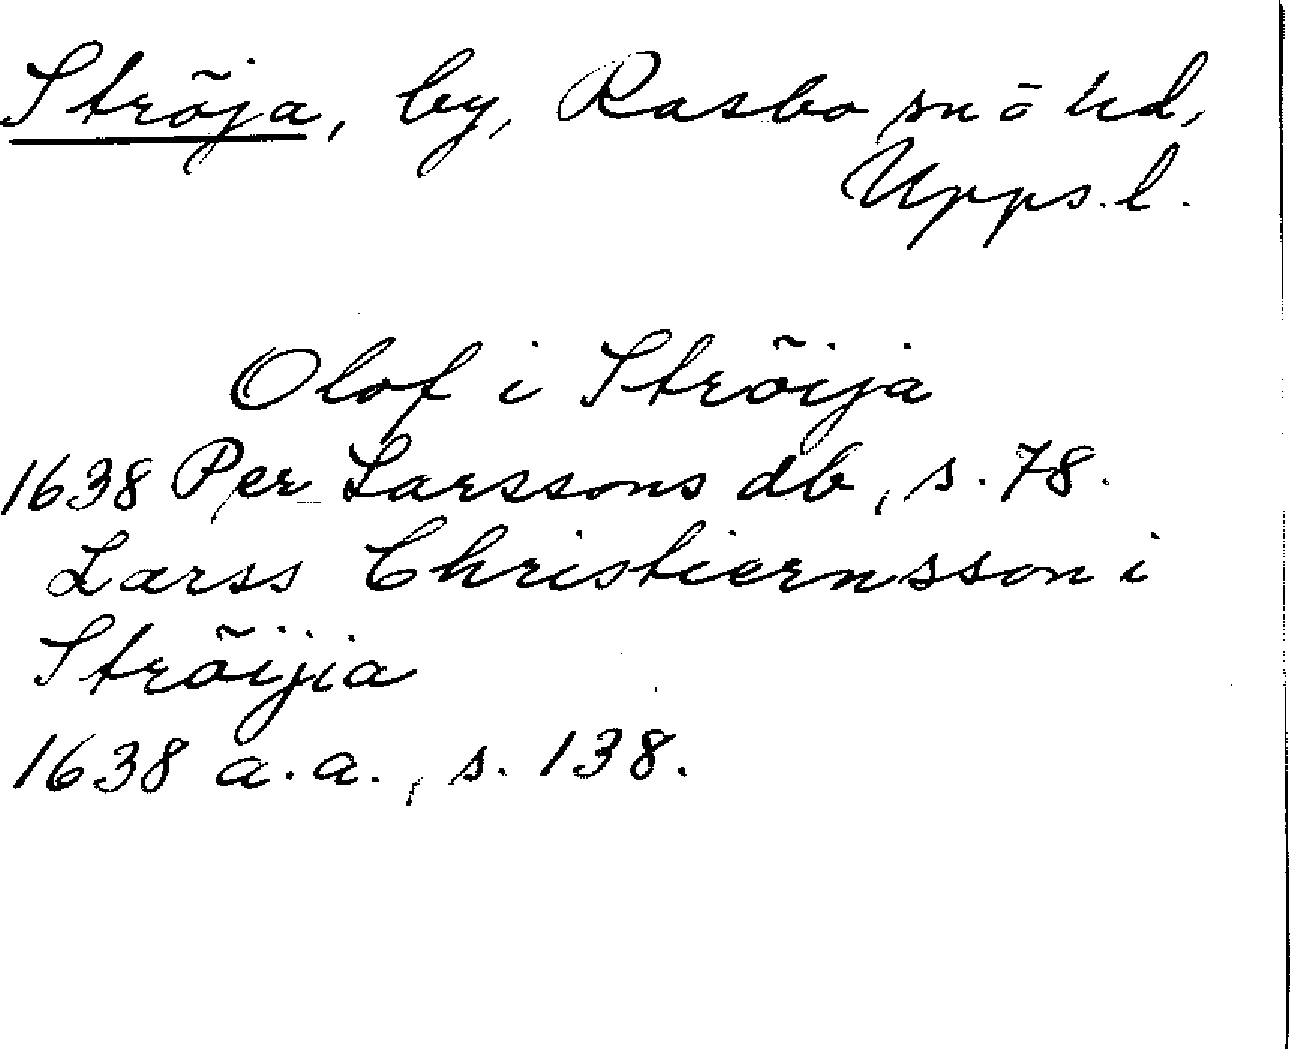 Ströja, by, Rasbo sn ö hd,
Upps. l.
Olof i Ströija
1638 Per Larssons db, s. 78.
Larss Christiernsson i
Ströijia
1638 a. a., s. 138.